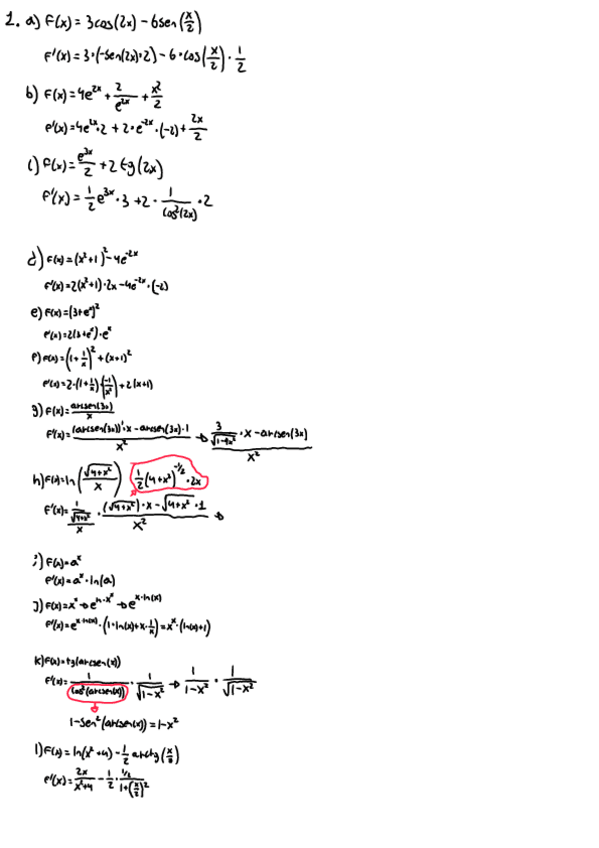 1. a) F(x) = 3cos(2x) - 6sen(x/2)
F'(x) = 3·(-sen(2x)·2) - 6·cos(x/2)·1/2
b) F(x) = 4e^2x + 2/e^2x + x²/2
F'(x) = 4e^2x·2 + 2·e^-2x·(-2) + 2x/2
c) F(x) = e^3x/2 + 2tg(2x)
F'(x) = 1/2 e^3x·3 + 2·1/cos²(2x)·2
d) F(x) = (x²+1)² - 4e^-2x
F'(x) = 2(x²+1)·2x - 4e^-2x·(-2)
e) F(x) = (3+e^x)²
F'(x) = 2(3+e^x)·e^x
f) F(x) = (1+1/x)² + (x+1)²
F'(x) = 2·(1+1/x)·(-1/x²) + 2(x+1)
g) F(x) = arcsen(3x)/x
F'(x) = ((arcsen(3x))'·x - arcsen(3x)·1)/x² → (3/√(1-9x²)·x - arcsen(3x))/x²
h) F(x) = ln(√(4+x²)/x) 1/2(4+x²)^-1/2·2x
F'(x) = 1/(√(4+x²)/x)·((√(4+x²))·x - √(4+x²)·1)/x² →
i) F(x) = a^x
F'(x) = a^x·ln(a)
J) F(x) = x^x → e^ln·x^x → e^x·ln(x)
F'(x) = e^x·ln(x)·(1·ln(x)+x·1/x) = x^x·(ln(x)+1)
k) F(x) = tg(arcsen(x))
F'(x) = 1/cos²(arcsen(x))·1/√(1-x²) → 1/(1-x²)·1/√(1-x²)
1-sen²(arcsen(x)) = 1-x²
l) F(x) = ln(x²+4) - 1/2 arctg(x/2)
F'(x) = 2x/(x²+4) - 1/2·(1/2)/(1+(x/2)²)